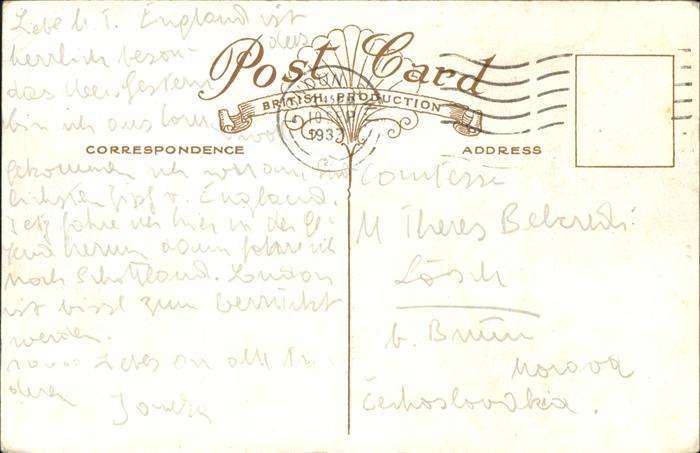 Post Card
BRITISH PRODUCTION
CORRESPONDENCE
ADDRESS
LONDON
10
1937
Liebe M T. England ist
herrlich beson
ders
das
bin ich aus Cornwall
gekommen
v. England.
Jetz fahre ich hier in der Ge
gend herum dann fahre ich
nach Schottland. London
ist bissl zum verrückt
werden.
Liebes an alle An
deren
Comtesse
M Theres Belcredi
Lösch
b. Brünn
Morava
Českoslovakia.